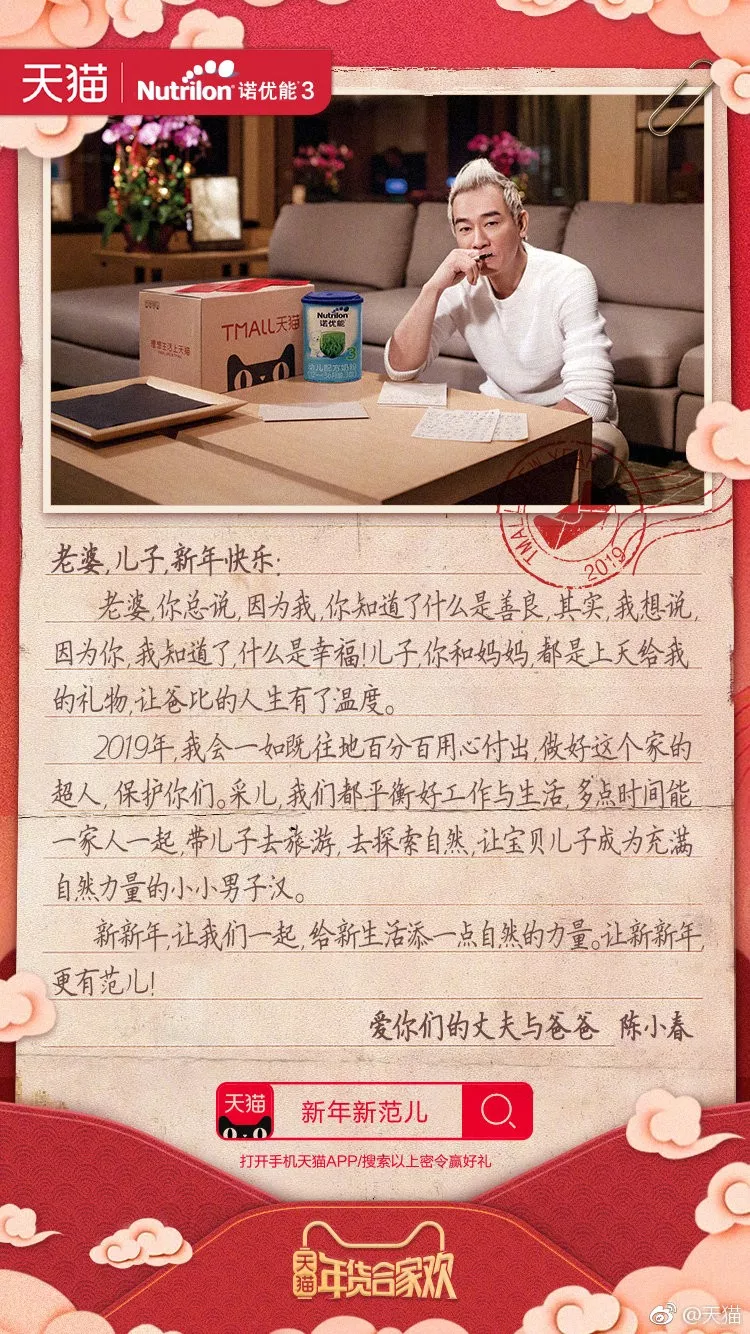 天猫 Nutrilon 诺优能 3
TMALL天猫
理想生活上天猫
Nutrilon
诺优能
3
幼儿配方奶粉
2019
老婆,儿子,新年快乐:
老婆,你总说,因为我,你知道了什么是善良,其实,我想说,
因为你,我知道了,什么是幸福!儿子,你和妈妈,都是上天给我
的礼物,让爸比的人生有了温度。
2019年,我会一如既往地百分百用心付出,做好这个家的
超人,保护你们。采儿,我们都平衡好工作与生活,多点时间能
一家人一起,带儿子去旅游,去探索自然,让宝贝儿子成为充满
自然力量的小小男子汉。
新新年,让我们一起,给新生活添一点自然的力量。让新新年,
更有范儿!
爱你们的丈夫与爸爸 陈小春
天猫 新年新范儿
打开手机天猫APP/搜索以上密令赢好礼
天猫 年货合家欢
@天猫